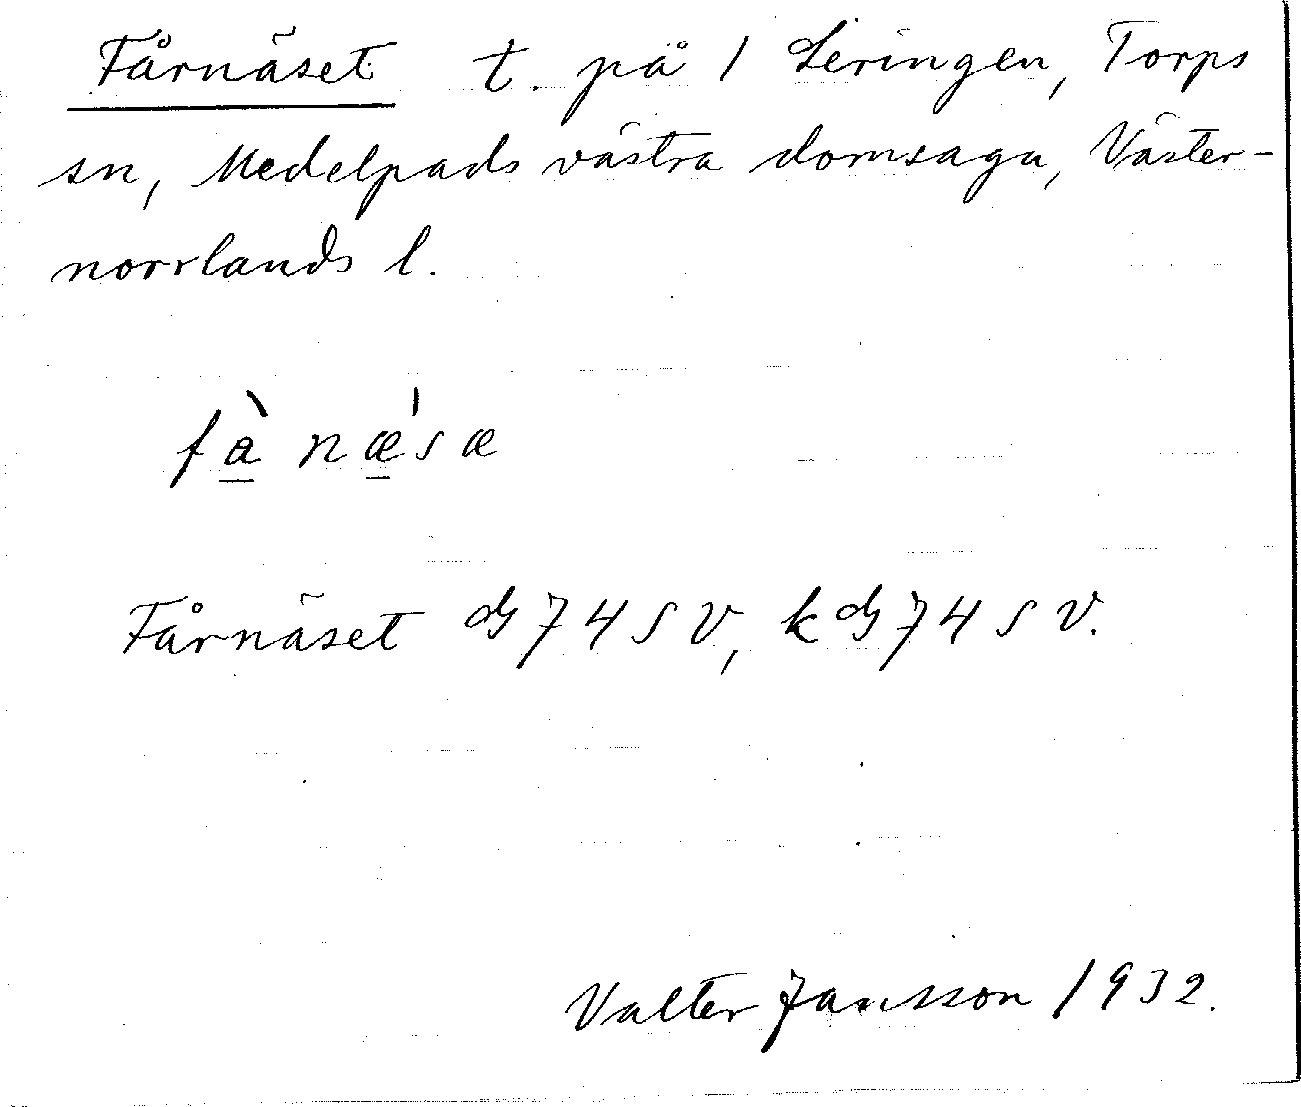 Fårnäset t. på 1 Leringen, Torps
sn, Medelpads västra domsaga, Väster-
norrlands l.
fà næ'sæ
Fårnäset dG 74 SV, kdG 74 SV.
Valter Jansson 1932.